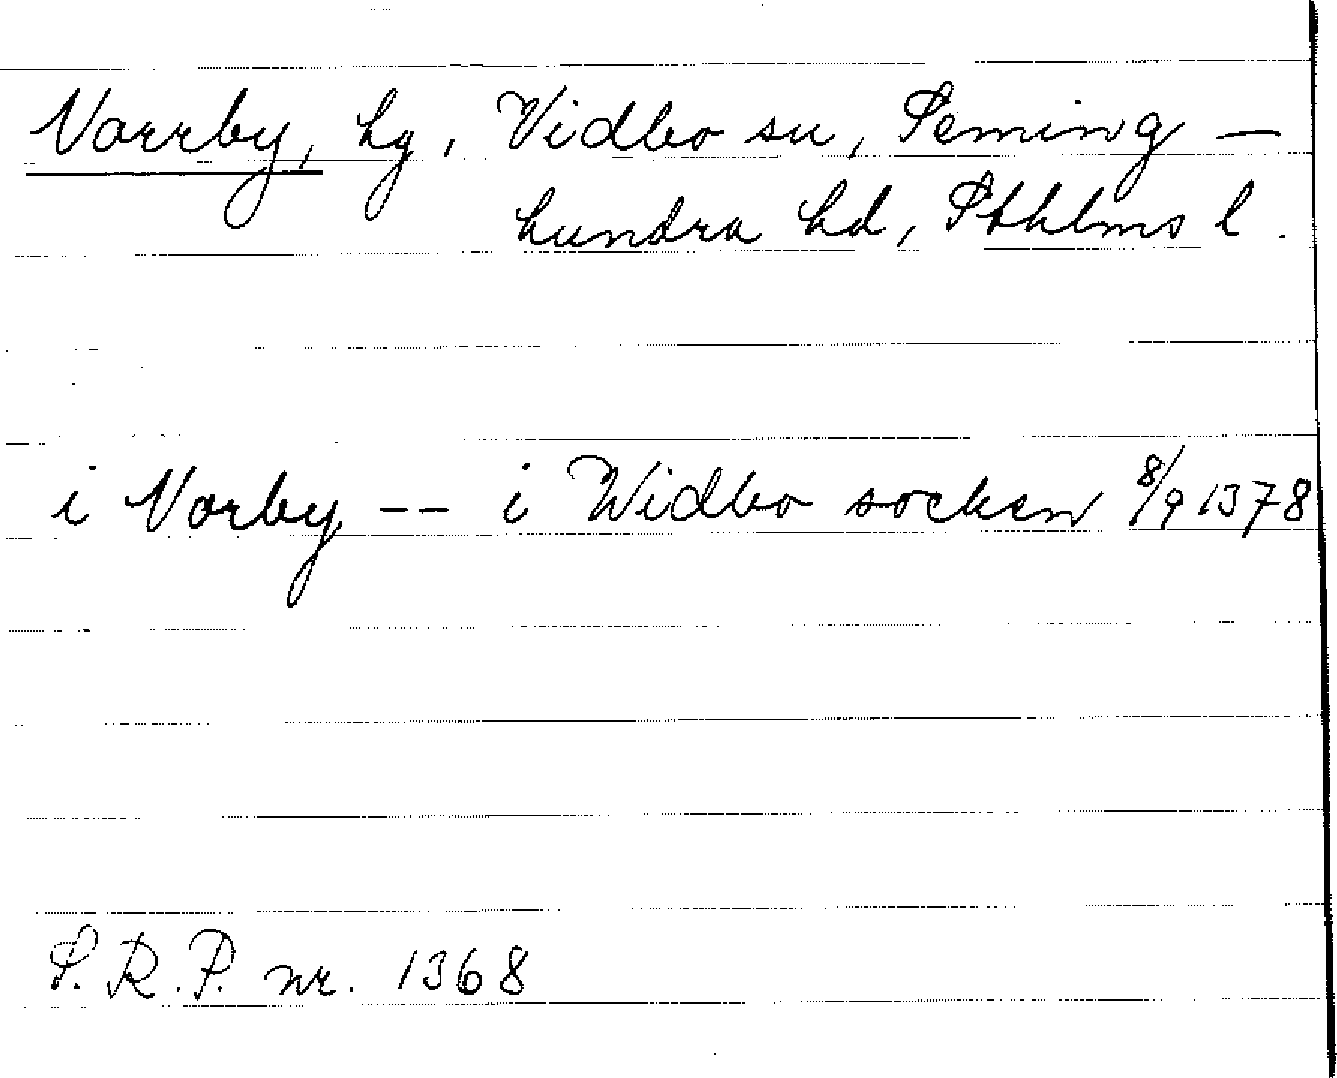 Norrby, hg, Vidbo sn, Seming-
hundra hd, Sthlms l.
i Norby -- i Widbo socken 8/9 1378
S.R.P. nr. 1368